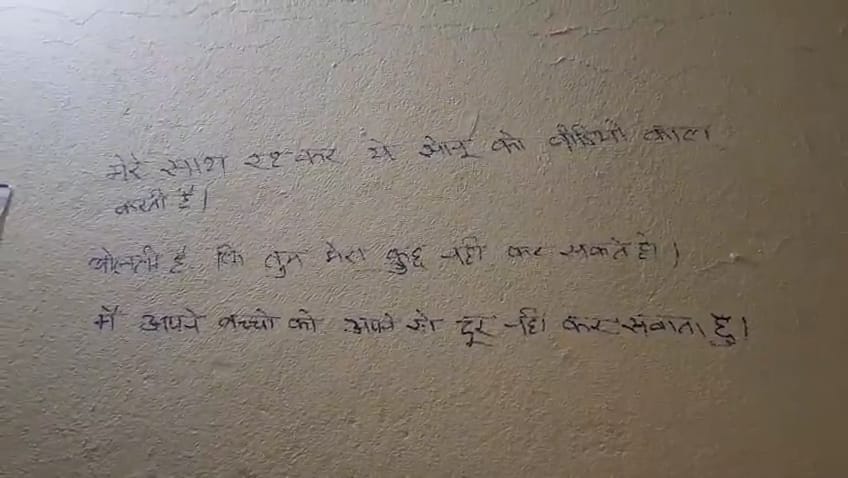 मेरे साथ रहकर ये सोनू को वीडियो काल
करती है।
बोलती है कि तुम मेरा कुछ नही कर सकते हो।
मैं अपने बच्चो को अपने से दूर नही कर सकता हु।